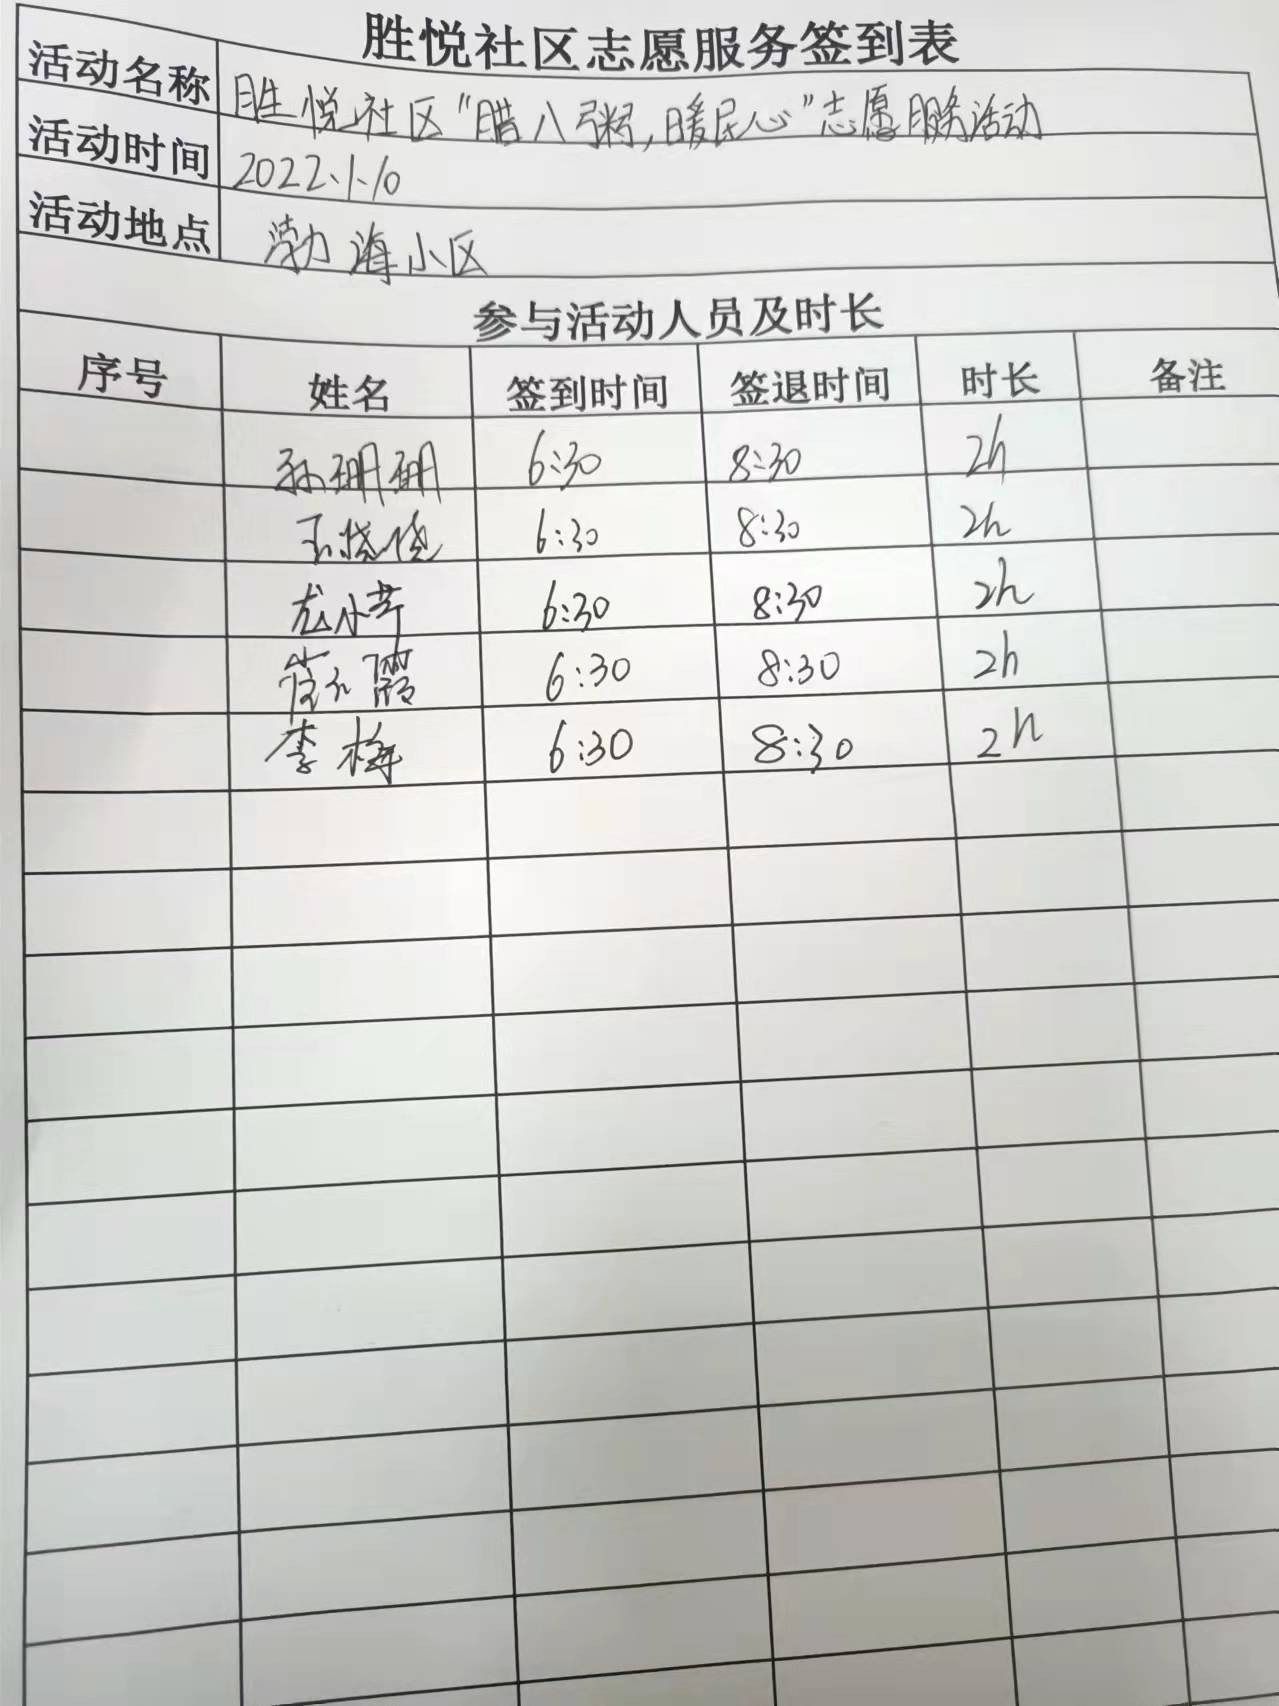 胜悦社区志愿服务签到表
活动名称 胜悦社区“腊八粥,暖民心”志愿服务活动
活动时间 2022.1.10
活动地点 渤海小区
参与活动人员及时长
序号 姓名 签到时间 签退时间 时长 备注
孙珊珊 6:30 8:30 2h
王晓倩 6:30 8:30 2h
尤小芹 6:30 8:30 2h
崔仁霞 6:30 8:30 2h
李梅 6:30 8:30 2h